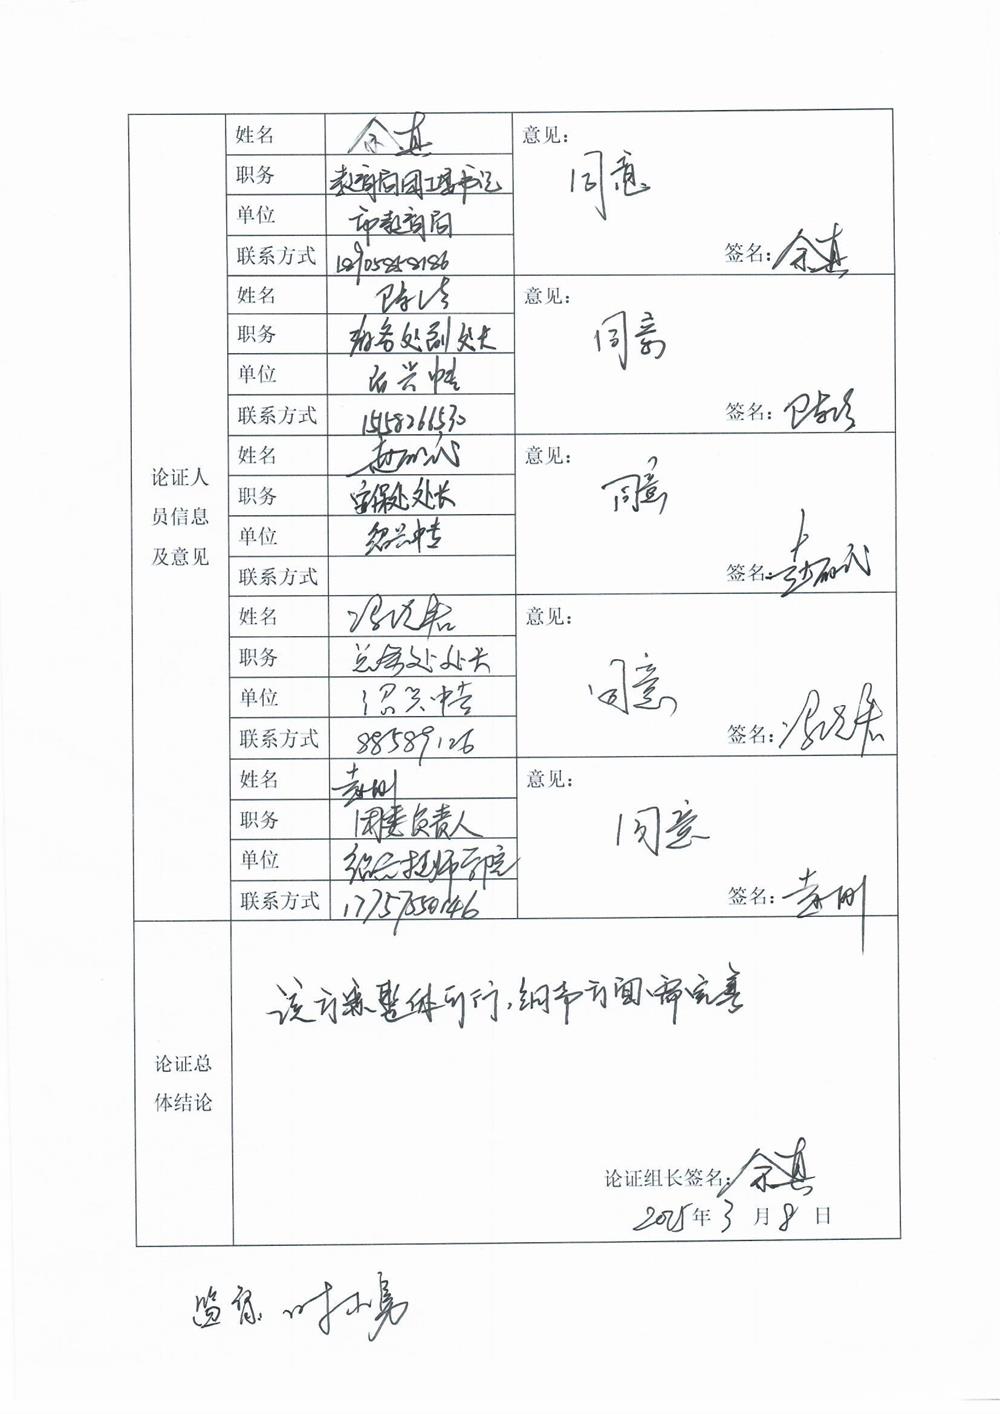 论证人
员信息
及意见
姓名 余真
职务 教育局团工委书记
单位 市教育局
联系方式
意见:
同意
签名: 余真
姓名
职务 教务处副处长
单位 绍兴中专
联系方式
意见:
同意
签名:
姓名
职务 安保处处长
单位 绍兴中专
联系方式
意见:
同意
签名:
姓名
职务 总务处处长
单位 绍兴中专
联系方式 88589126
意见:
同意
签名:
姓名 袁刚
职务 团委负责人
单位 绍兴技师学院
联系方式
意见:
同意
签名: 袁刚
论证总
体结论
该方案整体可行,细节方面需完善
论证组长签名: 余真
2025年3月8日